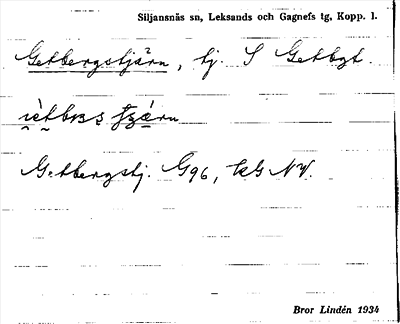 Siljansnäs sn, Leksands och Gagnefs tg, Kopp. l.
Getbergstjärn, tj. S Getbgt.
Getbergstj. G96, kG NV.
Bror Lindén 1934